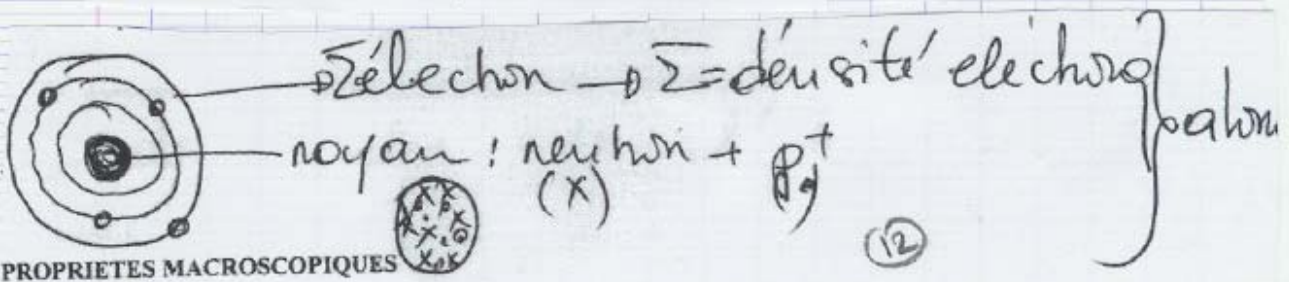 → Σélectron → Σ = dénsité eléctroq } atom
noyau : neutron + p+
(X)
(12)
PROPRIETES MACROSCOPIQUES